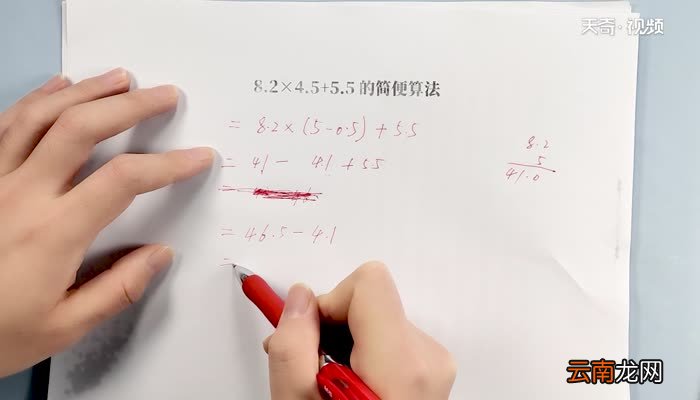 天奇·视频
8.2×4.5+5.5 的简便算法
= 8.2×(5-0.5)+5.5
= 41 - 4.1 + 5.5
=
= 46.5 - 4.1
=
8.2
5
41.0
云南龙网